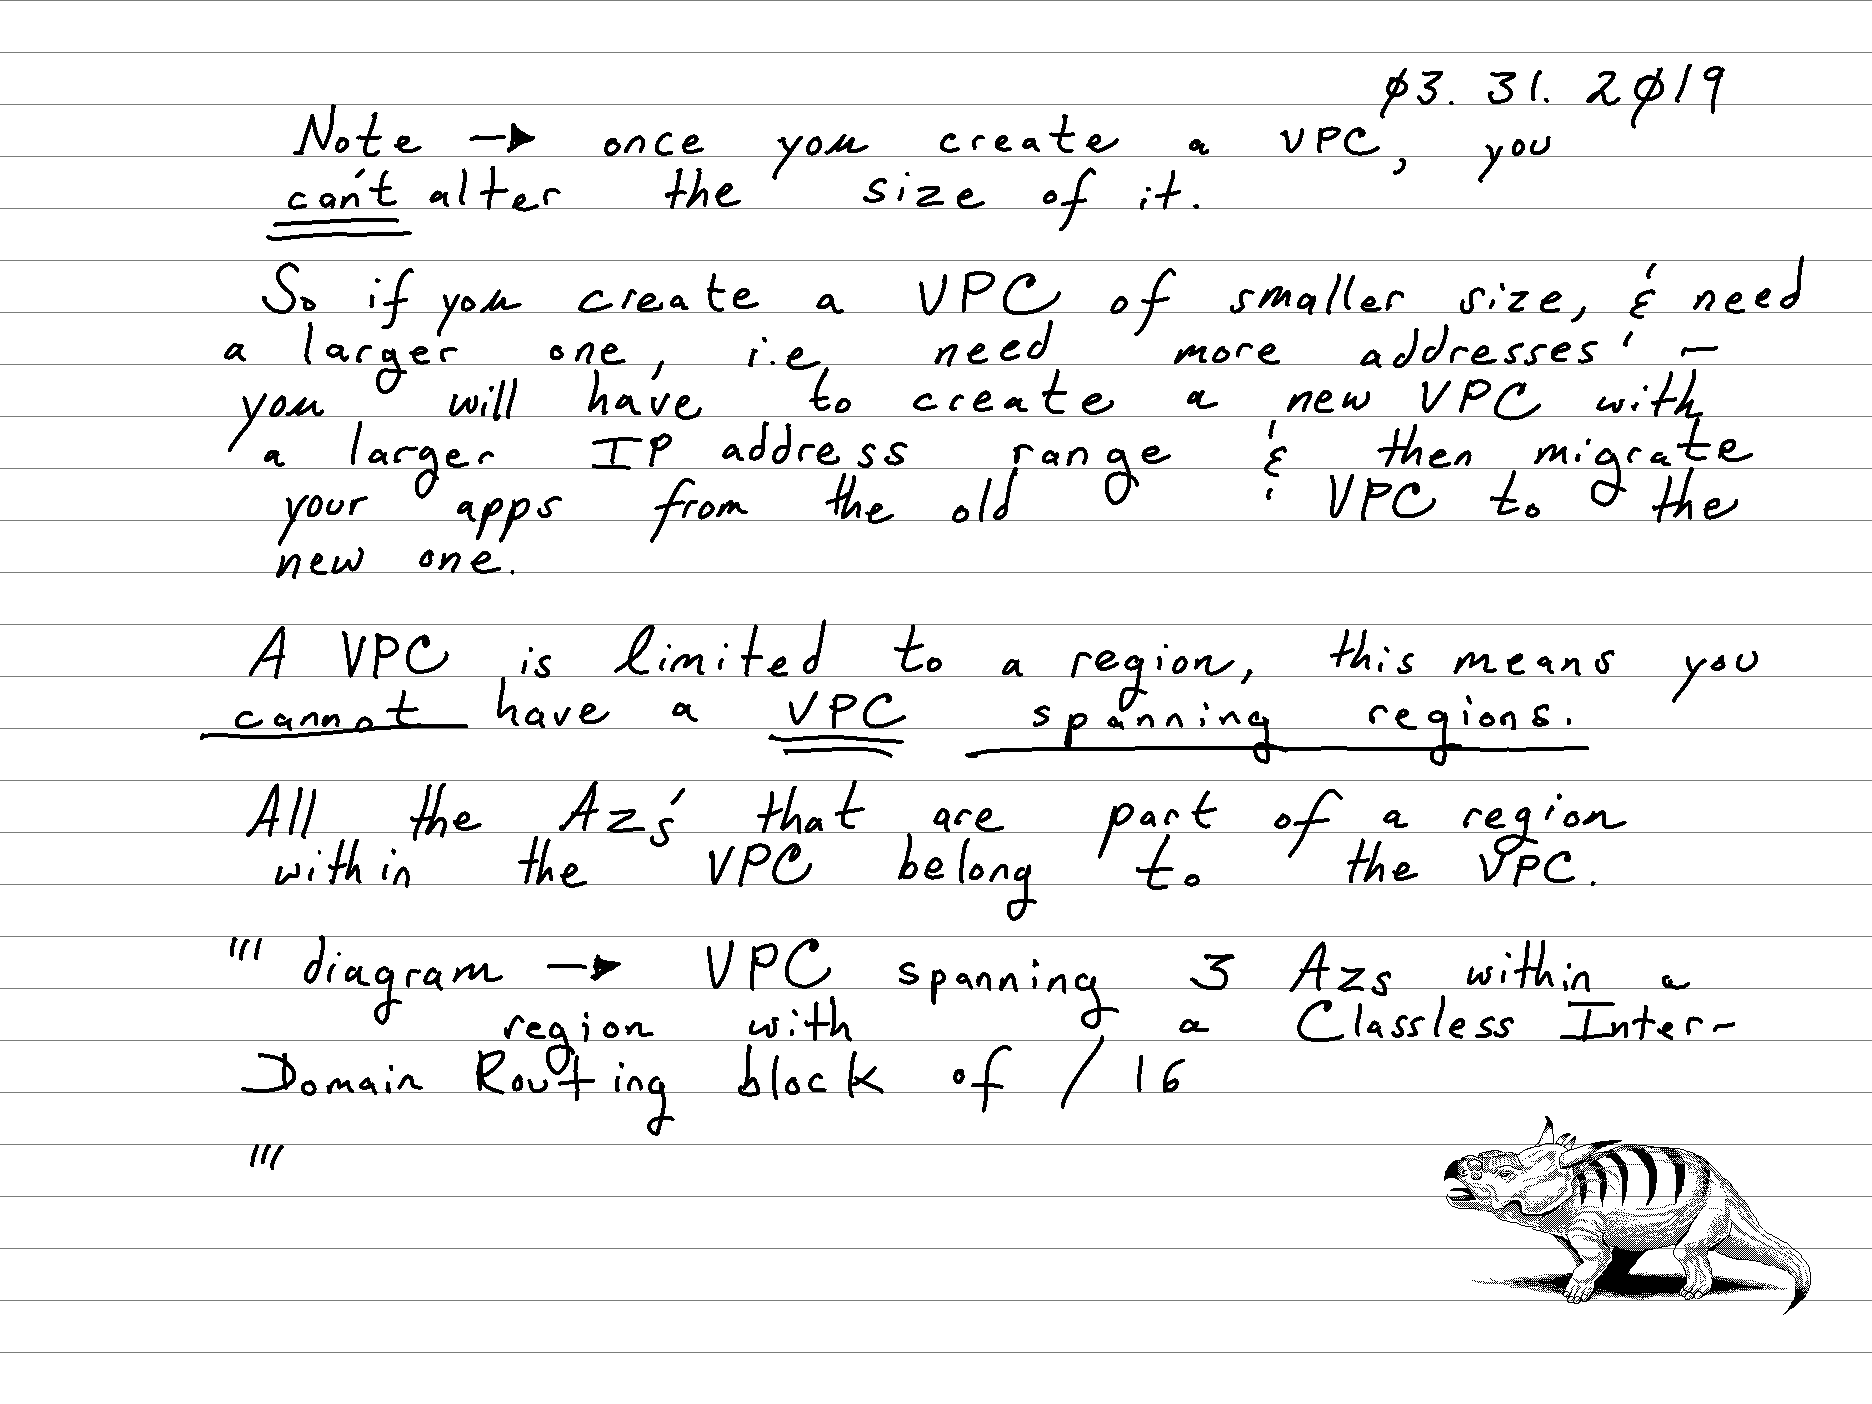 03. 31. 2019
Note → once you create a VPC, you
can't alter the size of it.
So if you create a VPC of smaller size, & need
a larger one, i.e need more addresses' –
you will have to create a new VPC with
a larger IP address range & then migrate
your apps from the old VPC to the
new one.
A VPC is limited to a region, this means you
cannot have a VPC spanning regions.
All the Azs' that are part of a region
within the VPC belong to the VPC.
''' diagram → VPC spanning 3 Azs within a
region with a Classless Inter-
Domain Routing block of /16
'''